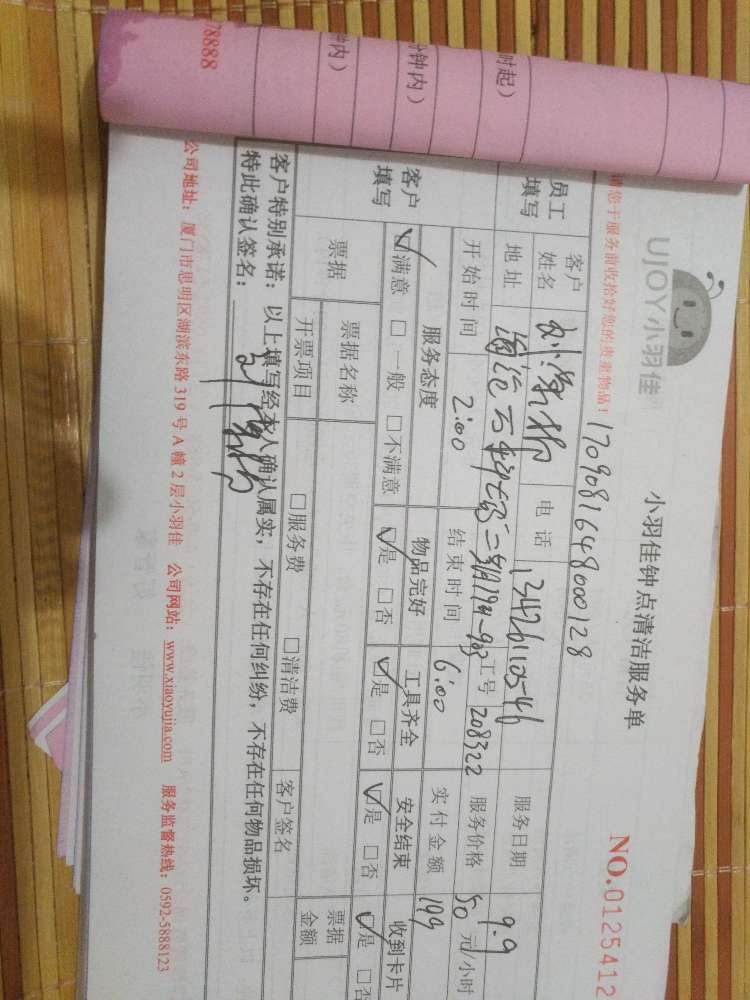 78888
时起）
钟内）
钟内）
UJOY小羽佳
小羽佳钟点清洁服务单
NO.0125412
请您于服务前收拾好您的贵重物品！
1709081648000128
员工填写
客户姓名
电话
13426110546
服务日期
9.9
地址
工号
208322
服务价格
50 元/小时
开始时间
2:00
结束时间
6:00
实付金额
199
客户填写
服务态度
物品完好
工具齐全
安全结束
收到卡片
☑满意 □一般 □不满意
☑是 □否
☑是 □否
☑是 □否
☑是 □否
票据
票据名称
开票项目
□服务费 □清洁费
客户签名
票据金额
客户特别承诺：以上填写经本人确认属实，不存在任何纠纷，不存在任何物品损坏。
特此确认签名：
公司地址：厦门市思明区湖滨东路319号A幢2层小羽佳 公司网站：www.xiaoyujia.com 服务监督热线：0592-5888123